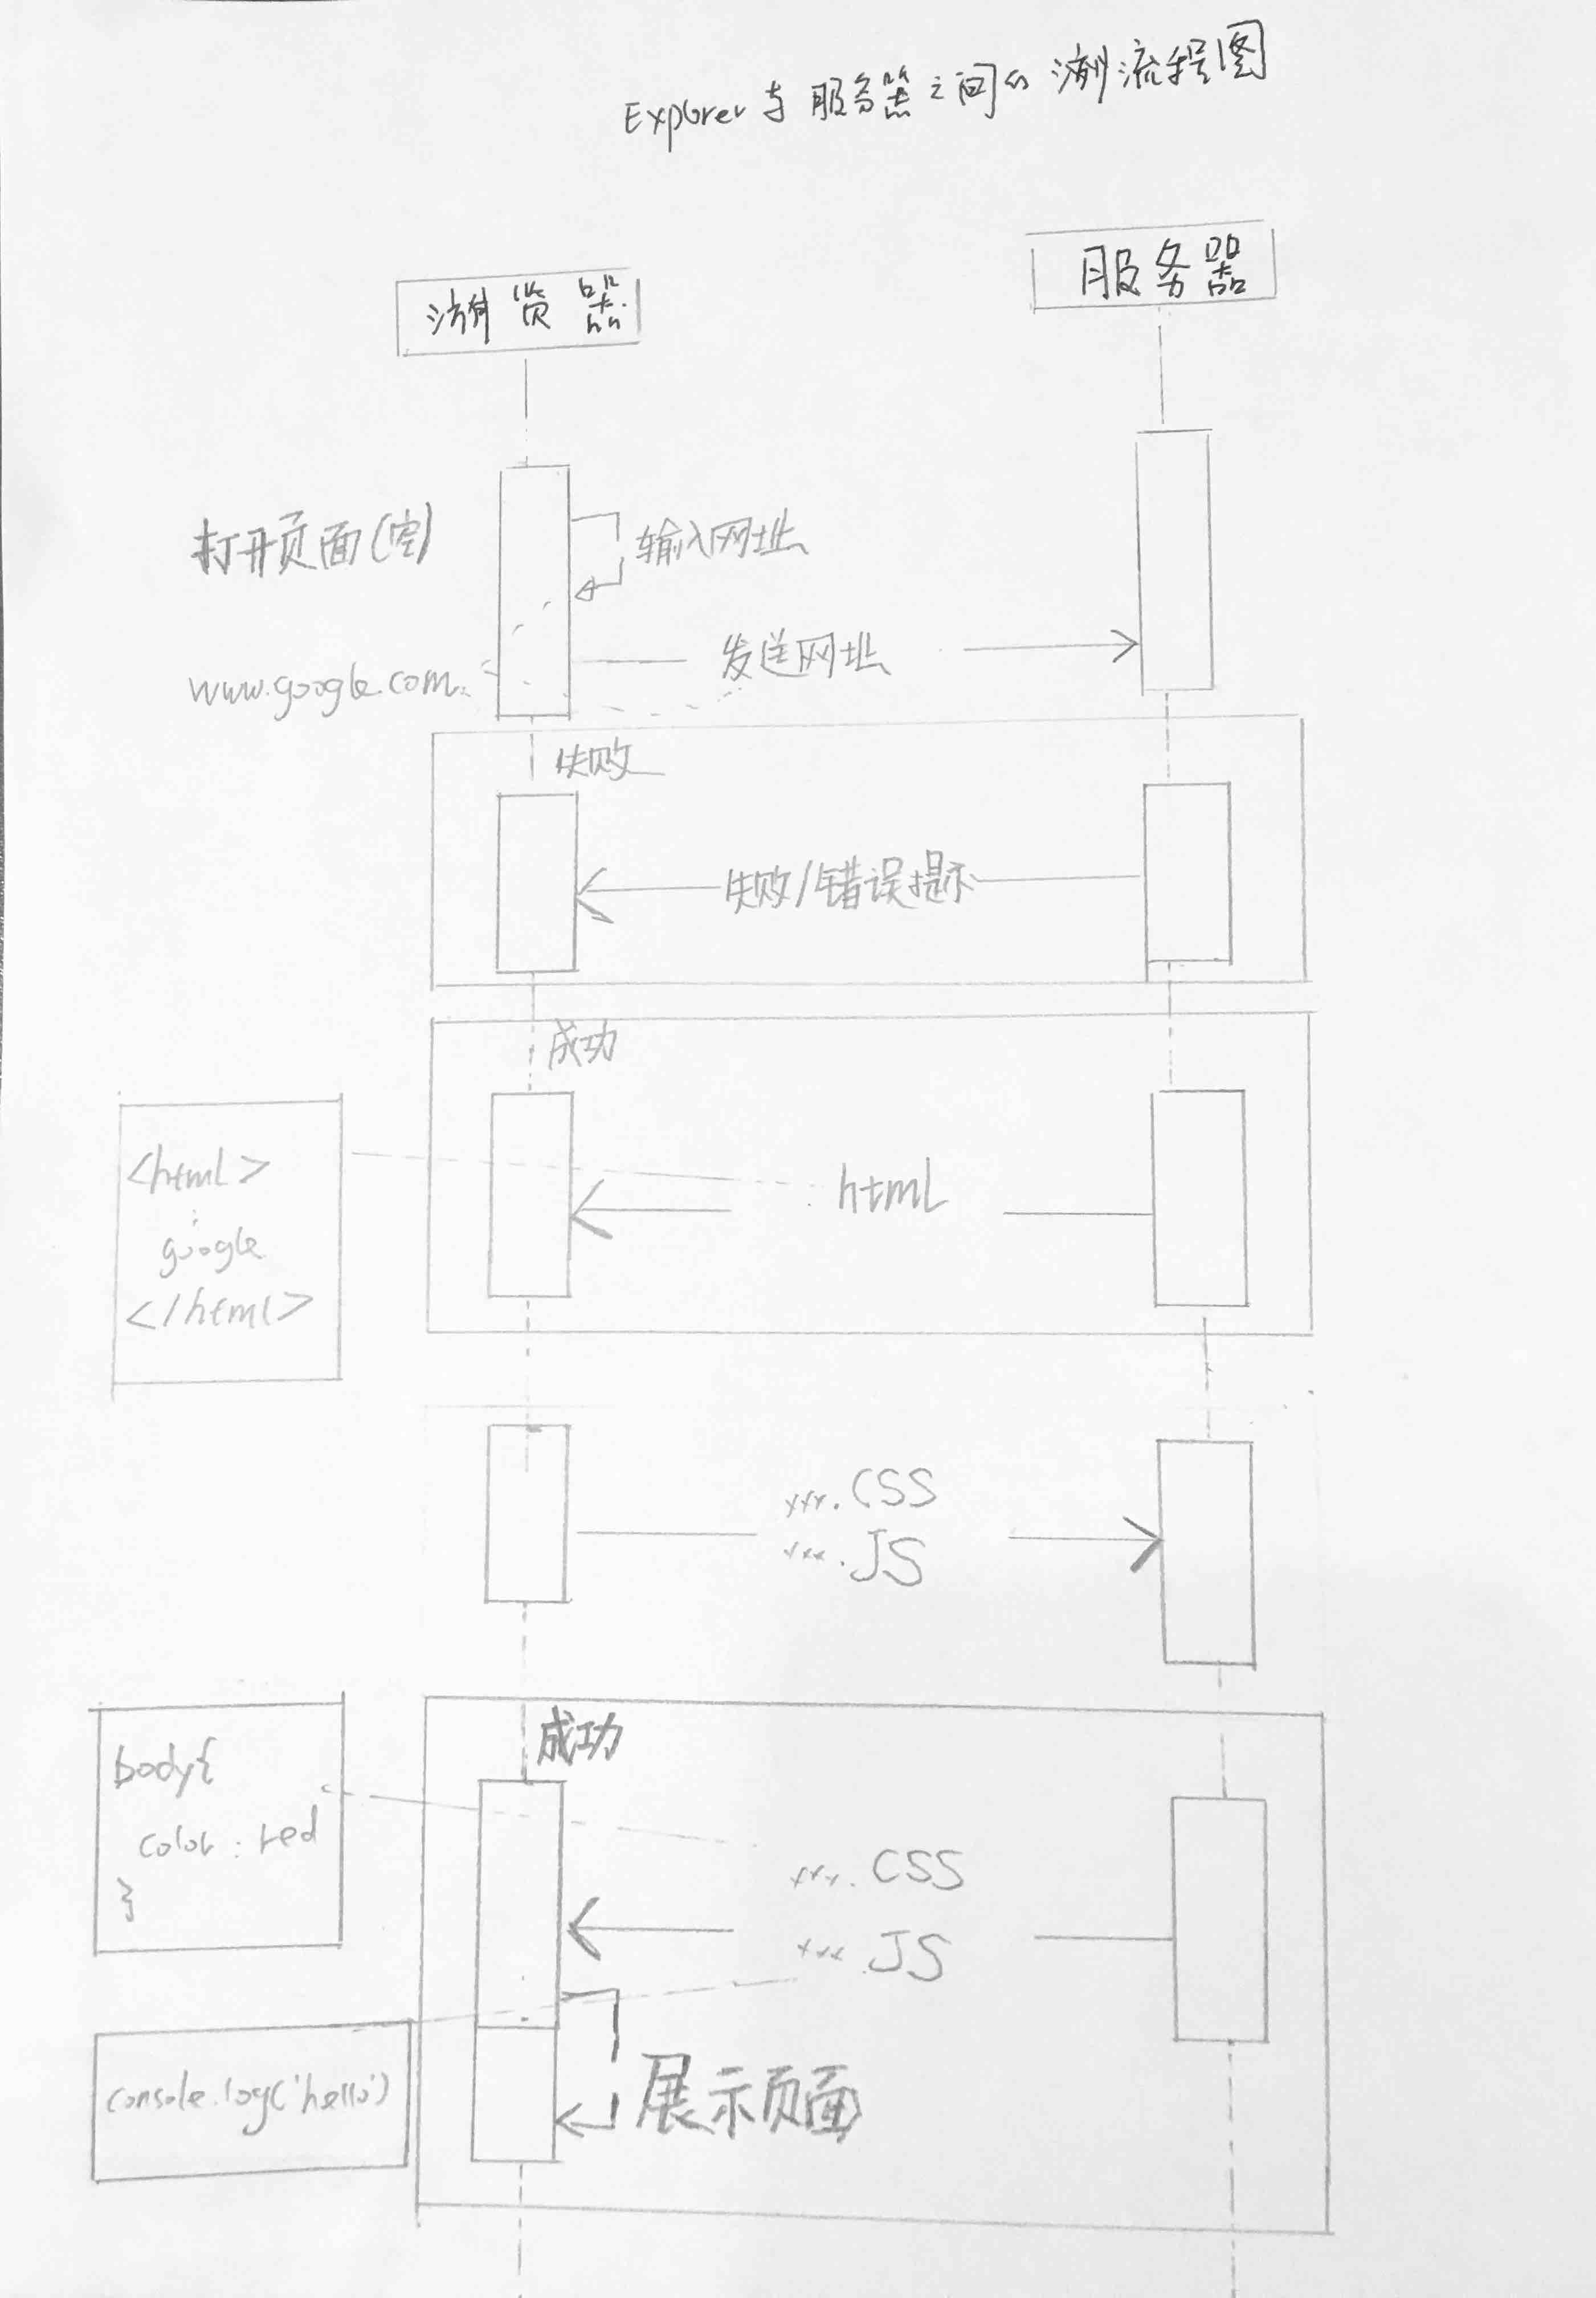 Explorer与服务器之间的 流程图
服务器
打开页面(空)
输入网址
发送网址
www.google.com
失败
失败/错误提示
成功
<html>
google
</html>
html
xxx.CSS
xxx.JS
成功
body{
color:red
}
xxx.CSS
xxx.JS
console.log('hello')
展示页面